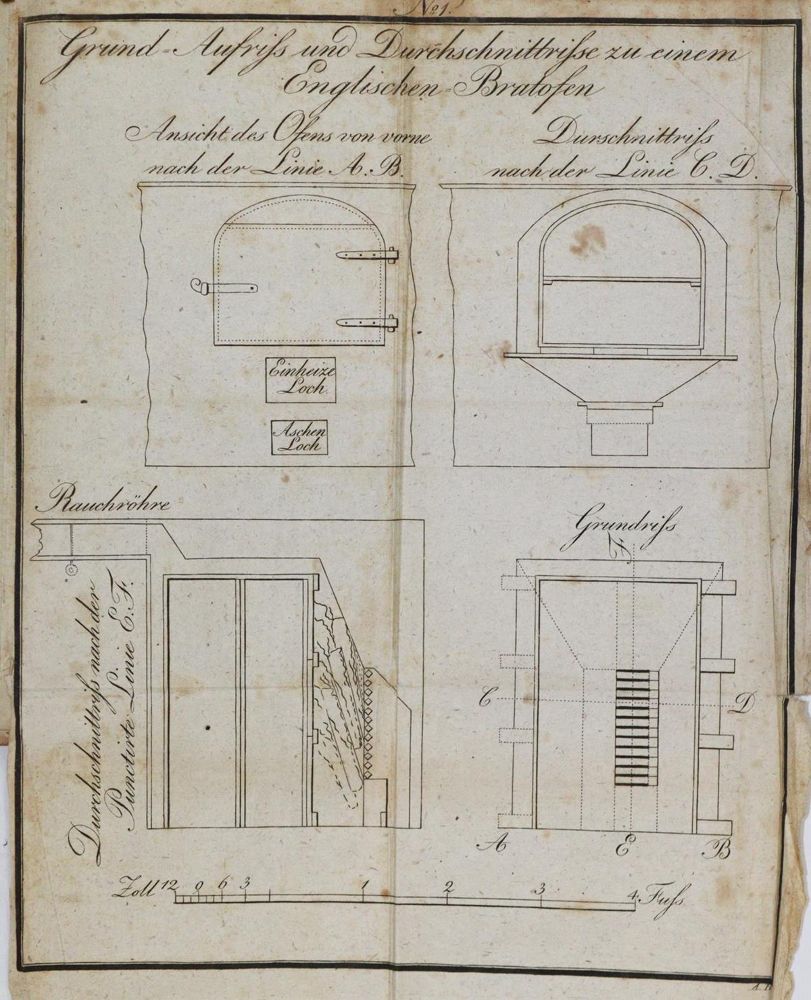 No 1.
Grund-Aufriſs und Durchschnittriſse zu einem
Englischen-Bratofen
Ansicht des Ofens von vorne
nach der Linie A. B.
Durschnittriſs
nach der Linie C. D.
Einheize
Loch.
Aschen
Loch
Rauchröhre
Durchschnittriſs nach der
Punctirte Linie E. F.
Grundriſs
F
C
D
A
E
B
Zoll 12 9 6 3 1 2 3 4 Fuſs